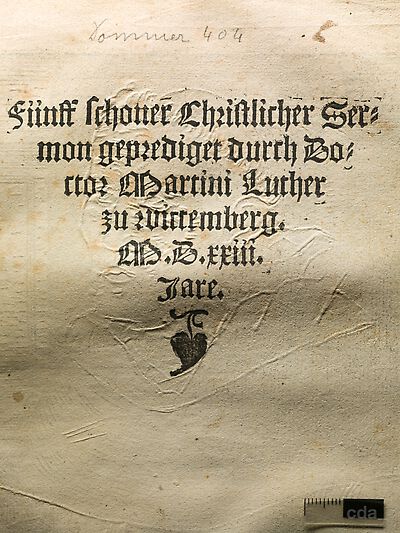 Dommer 404
Fünff schoner Christlicher Ser⸗
mon geprediget durch Do⸗
ctor Martini Luther
zu wittemberg.
M.D.xxiii.
Jare.
cda